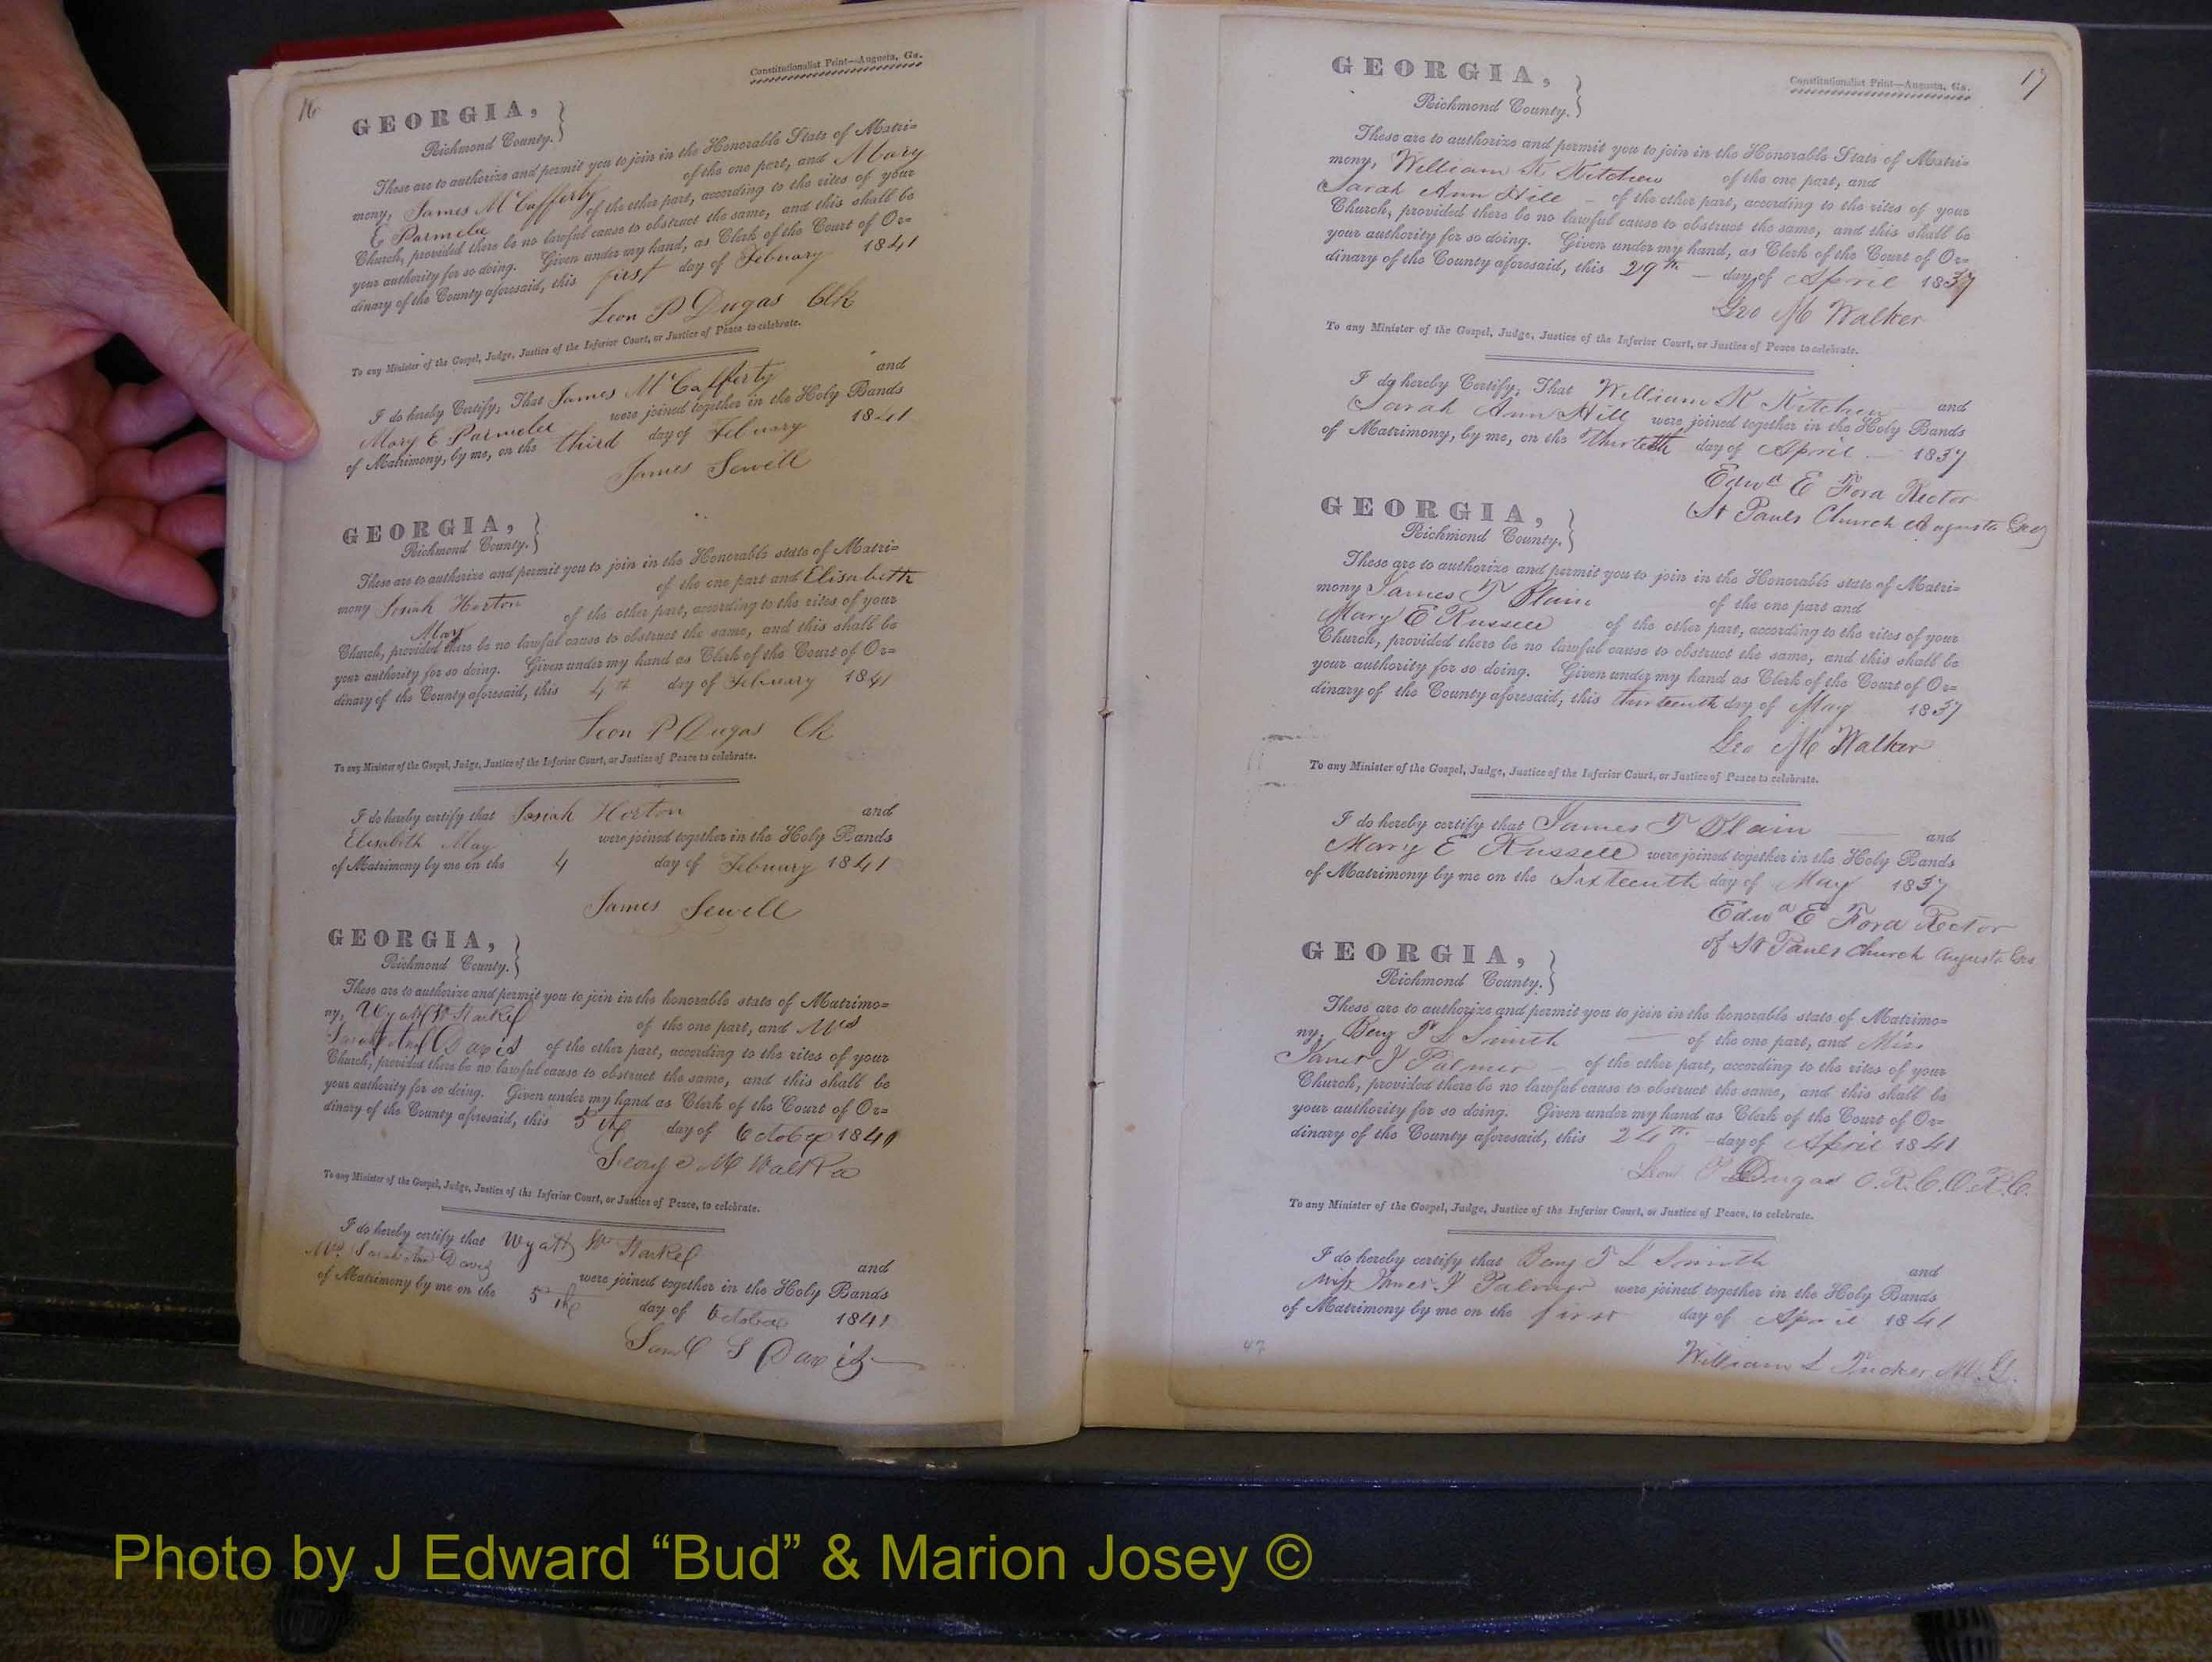 16
Constitutionalist Print—Augusta, Ga.
GEORGIA,
Richmond County.
These are to authorize and permit you to join in the Honorable State of Matri-
mony, James McCafferty of the one part, and Mary
E Parmelee of the other part, according to the rites of your
Church, provided there be no lawful cause to obstruct the same, and this shall be
your authority for so doing. Given under my hand, as Clerk of the Court of Or-
dinary of the County aforesaid, this first day of Febuary 1841
Leon P Dugas Clk
To any Minister of the Gospel, Judge, Justice of the Inferior Court, or Justice of Peace to celebrate.
I do hereby Certify, That James McCafferty and
Mary E Parmelee were joined together in the Holy Bands
of Matrimony, by me, on the third day of Febuary 1841
James Sewell
GEORGIA,
Richmond County.
These are to authorize and permit you to join in the Honorable state of Matri-
mony Josiah Horton of the one part and Elisabeth
May of the other part, according to the rites of your
Church, provided there be no lawful cause to obstruct the same, and this shall be
your authority for so doing. Given under my hand as Clerk of the Court of Or-
dinary of the County aforesaid, this 4th day of Febuary 1841
Leon P Dugas Clk
To any Minister of the Gospel, Judge, Justice of the Inferior Court, or Justice of Peace to celebrate.
I do hereby certify that Josiah Horton and
Elisabeth May were joined together in the Holy Bands
of Matrimony by me on the 4 day of Febuary 1841
James Sewell
GEORGIA,
Richmond County.
These are to authorize and permit you to join in the honorable state of Matrimo-
ny, Wyatt W of the one part, and Mrs
Sarah Ann Davis of the other part, according to the rites of your
Church, provided there be no lawful cause to obstruct the same, and this shall be
your authority for so doing. Given under my hand as Clerk of the Court of Or-
dinary of the County aforesaid, this 5th day of October 1841
George M Walker
To any Minister of the Gospel, Judge, Justice of the Inferior Court, or Justice of Peace, to celebrate.
I do hereby certify that Wyatt W and
Mrs Sarah Ann Davis were joined together in the Holy Bands
of Matrimony by me on the 5th day of October 1841
Saml S Davis
17
Constitutionalist Print—Augusta, Ga.
GEORGIA,
Richmond County.
These are to authorize and permit you to join in the Honorable State of Matri-
mony, William K Kitchen of the one part, and
Sarah Ann Hill of the other part, according to the rites of your
Church, provided there be no lawful cause to obstruct the same, and this shall be
your authority for so doing. Given under my hand, as Clerk of the Court of Or-
dinary of the County aforesaid, this 29th day of April 1837
Geo M Walker
To any Minister of the Gospel, Judge, Justice of the Inferior Court, or Justice of Peace to celebrate.
I do hereby Certify, That William K Kitchen and
Sarah Ann Hill were joined together in the Holy Bands
of Matrimony, by me, on the day of April 1837
Edwd E Ford Rector
St Pauls Church Augusta Geo
GEORGIA,
Richmond County.
These are to authorize and permit you to join in the Honorable state of Matri-
mony James T Blain of the one part and
Mary E Russell of the other part, according to the rites of your
Church, provided there be no lawful cause to obstruct the same, and this shall be
your authority for so doing. Given under my hand as Clerk of the Court of Or-
dinary of the County aforesaid, this thirteenth day of May 1837
Geo M Walker
To any Minister of the Gospel, Judge, Justice of the Inferior Court, or Justice of Peace to celebrate.
I do hereby certify that James T Blain and
Mary E Russell were joined together in the Holy Bands
of Matrimony by me on the Sixteenth day of May 1837
Edwd E Ford Rector
of St Pauls Church Augusta Geo
GEORGIA,
Richmond County.
These are to authorize and permit you to join in the honorable state of Matrimo-
ny, Benj F L Smith of the one part, and Miss
J Palmer of the other part, according to the rites of your
Church, provided there be no lawful cause to obstruct the same, and this shall be
your authority for so doing. Given under my hand as Clerk of the Court of Or-
dinary of the County aforesaid, this 24th day of April 1841
Leon P Dugas C.R.C.O.R.C.
To any Minister of the Gospel, Judge, Justice of the Inferior Court, or Justice of Peace, to celebrate.
I do hereby certify that Benj F L Smith and
Miss J Palmer were joined together in the Holy Bands
of Matrimony by me on the first day of April 1841
William L Tucker M.G.
47
Photo by J Edward “Bud” & Marion Josey ©